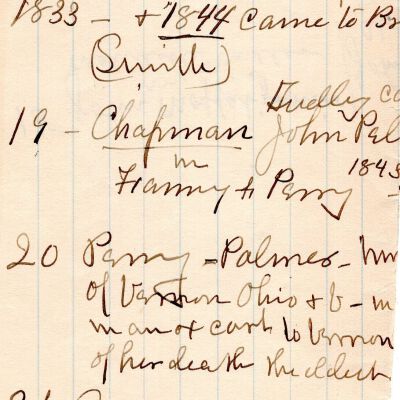 1833 - + 1844 came to Br
(Smith)
Dudley co
19 - Chapman John Pal
m
Franny + Perry 1843 -
20 Perry - Palmer -
of Vernon Ohio + b - m
in an ox cart to Vernon
of her death the oldest